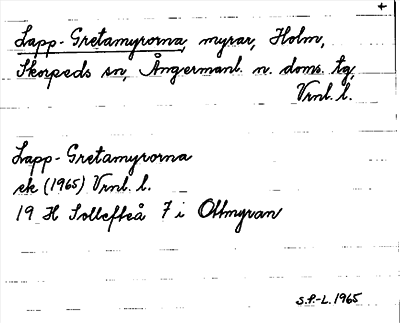 +
Lapp-Gretamyrorna, myrar, Holm,
Skorpeds sn, Ångermanl. n. doms. tg,
Vrnl. l.
Lapp-Gretamyrorna
ek (1965) Vrnl. l.
19 H Sollefteå 7 i Ottmyran
S.P.-L. 1965